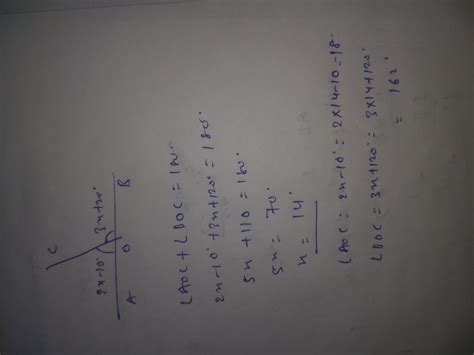 C
2x-10° 3x+20°
A O B
∠AOC + ∠BOC = 180°
2x-10° + 3x+120° = 180°
5x + 110 = 180°
5x = 70°
x = 14°
∠AOC = 2x-10° = 2×14-10 = 18°
∠BOC = 3x+120° = 3×14+120°
= 162°